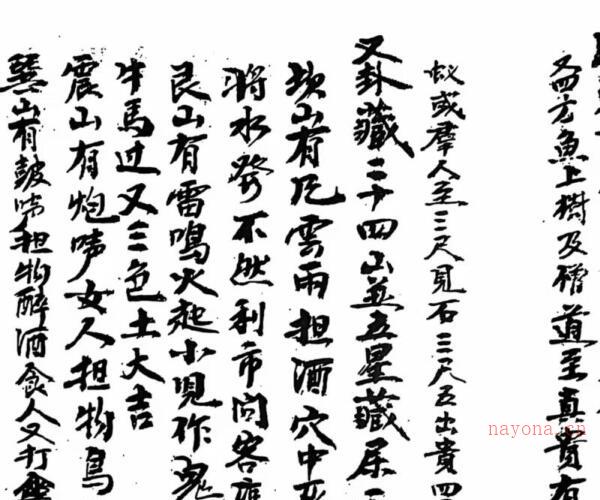 又四方魚上樹及僧道至真貴有
或群人至三尺見石三尺五出貴四
又卦藏二十四山並五星藏屍
坎山有風雲雨担酒穴中
將水發不然利市向客
艮山有雷鳴火起小兒作鬼
牛馬过又三色土大吉
震山有炮声女人担物鳥
巽山有鼓声担物醉酒食人又打
nayona.cn